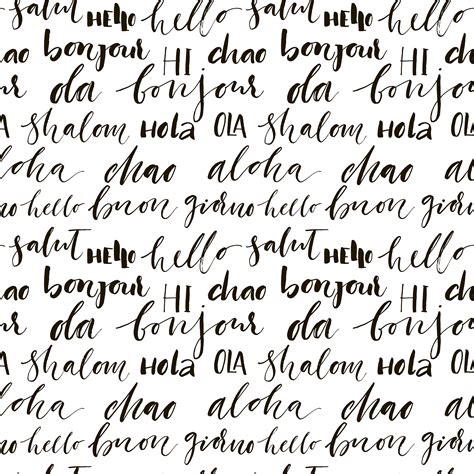 salut HELLO hello salut HELLO hello
ao bonjour HI chao bonjour HI chao
ur ola bonjour ola bonjour
A shalom HOLA OLA shalom HOLA OLA
aloha chao aloha chao
no hello buon giorno hello buon giorno
salut HELLO hello salut HELLO hello
ao bonjour HI chao bonjour HI chao
ur ola bonjour ola bonjour
A shalom HOLA OLA shalom HOLA OLA
aloha chao aloha chao
no hello buon giorno hello buon giorno